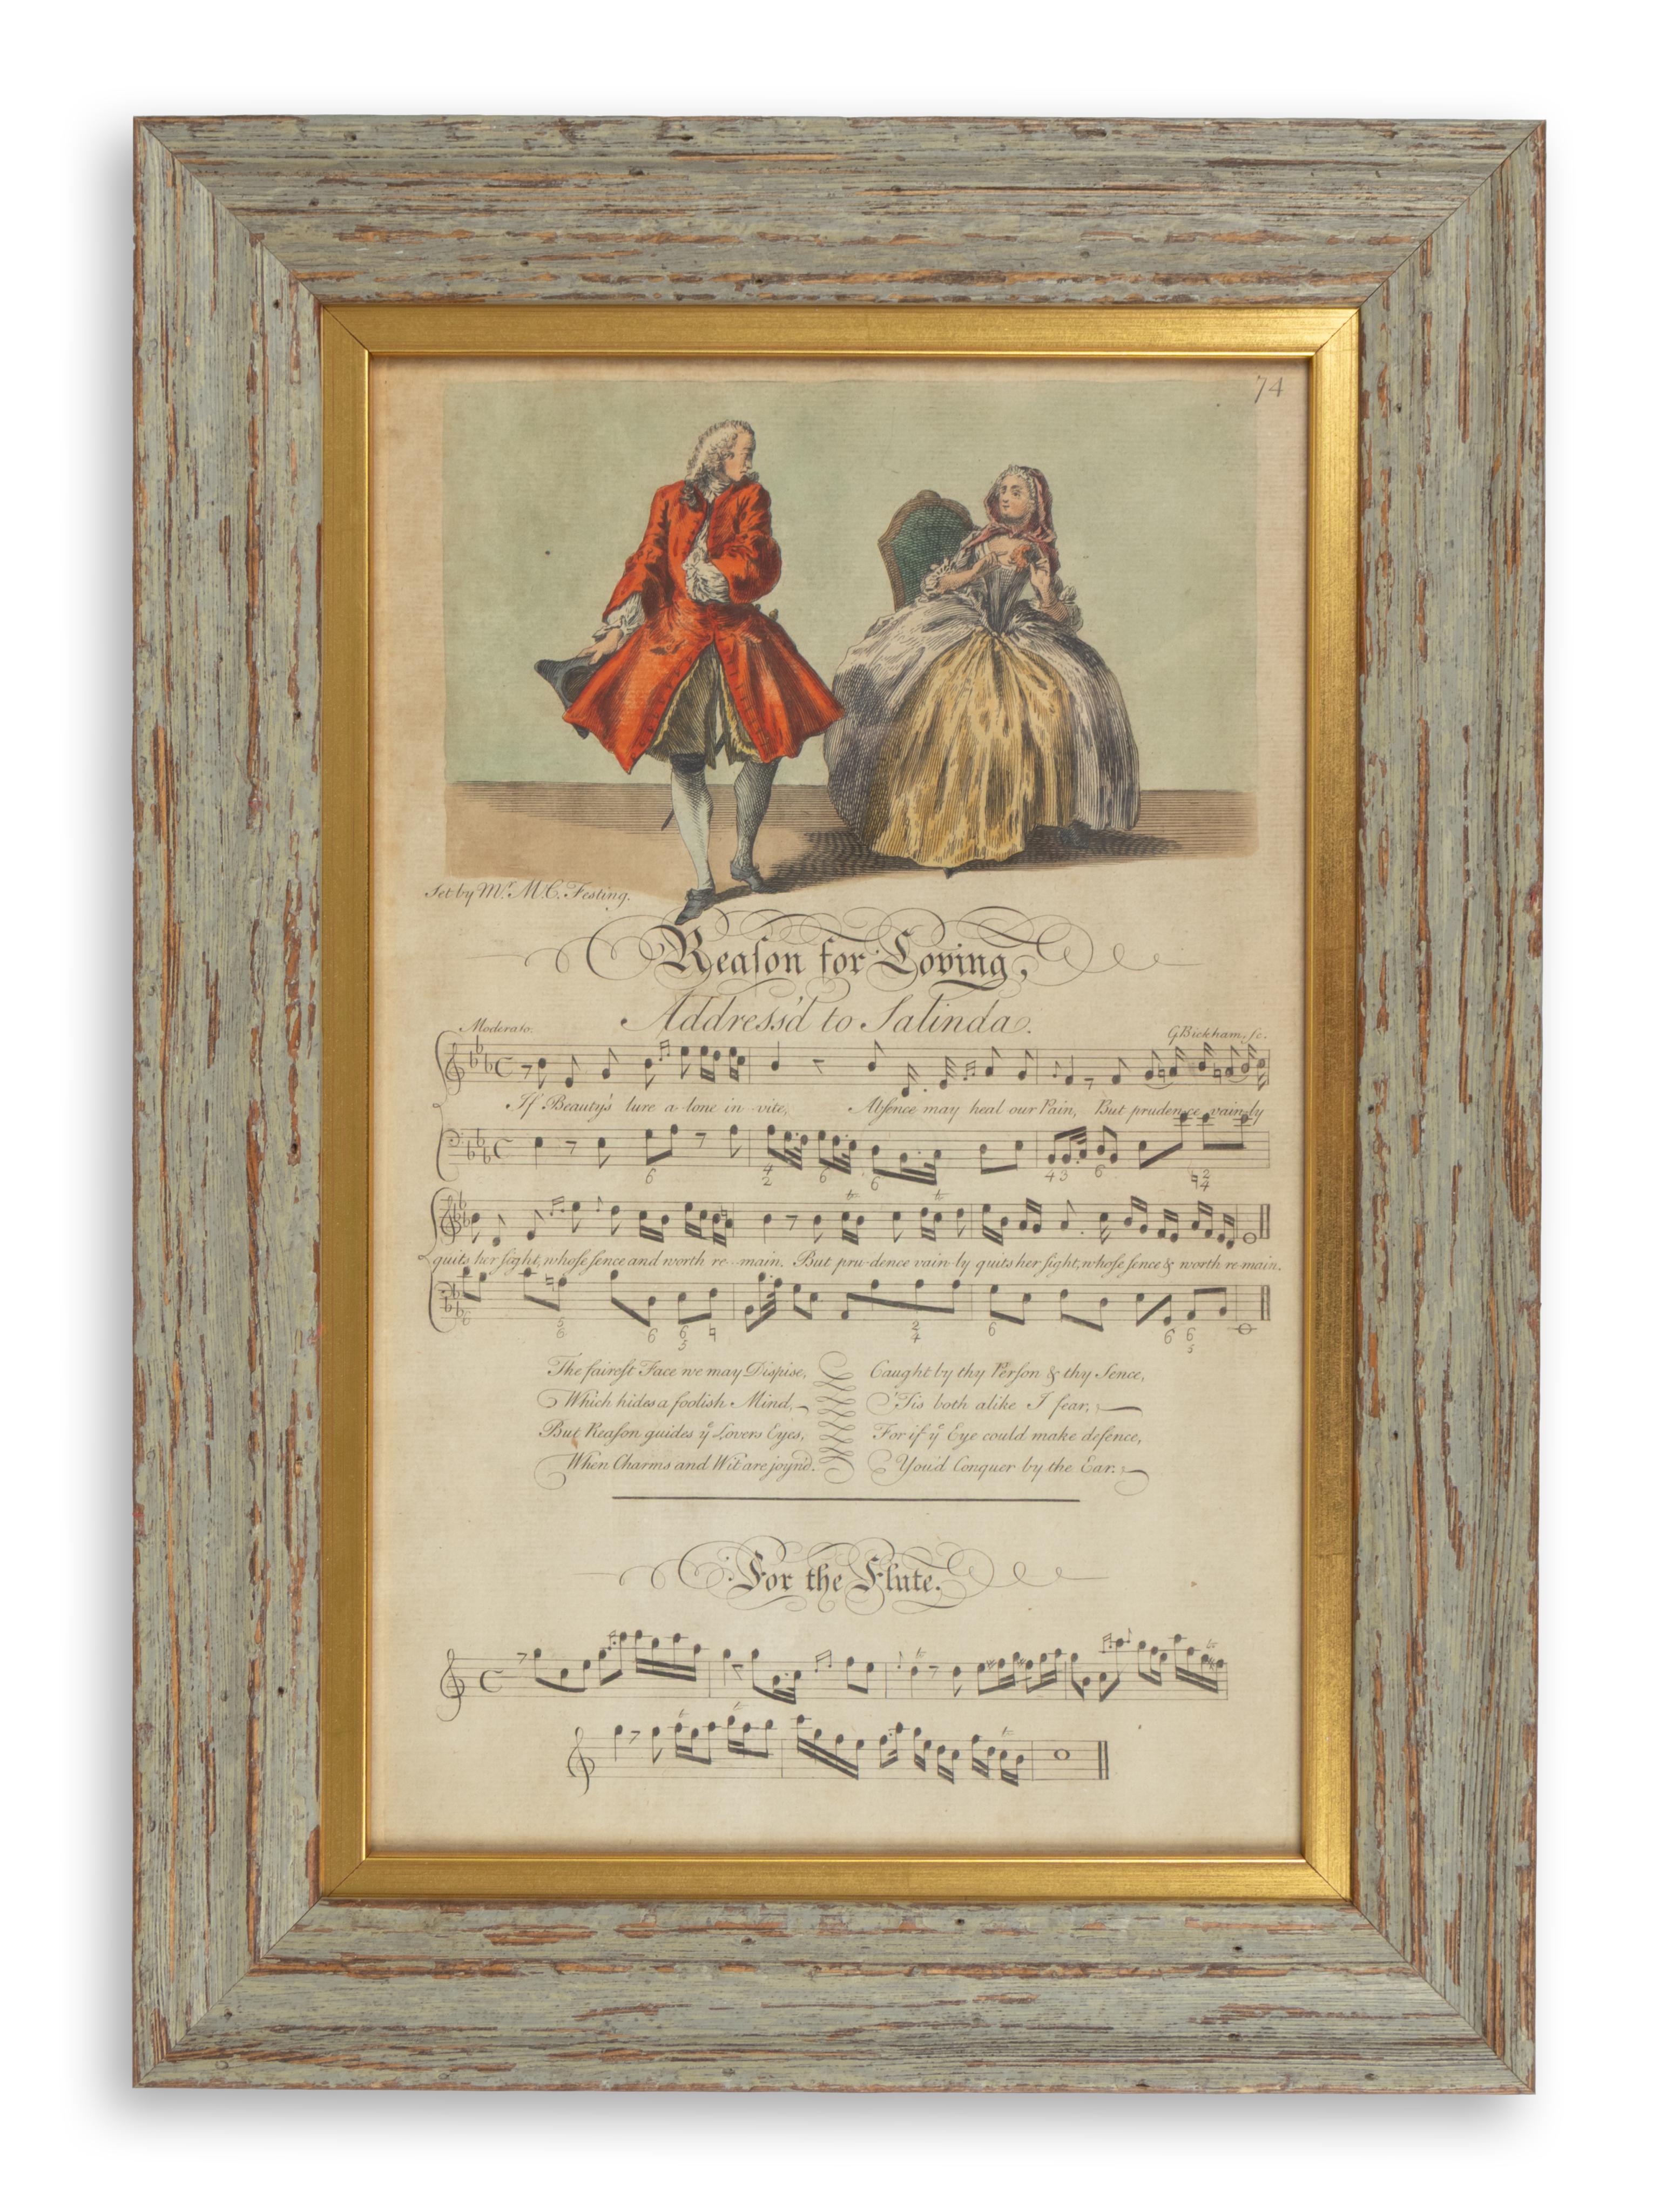 74
Set by Mr. M.C. Festing.
Reaſon for Loving,
Addreſs'd to Salinda.
Moderato.
G. Bickham, ſc.
If Beauty's lure a-lone in vite, Abſence may heal our Pain, But prudence vain-ly
6 4 2 6 6 4 3 6 2 4
tr tr
quits her ſight, whoſe ſence and worth re--main. But pru-dence vain-ly quits her ſight, whoſe ſence & worth re-main.
6 5 6 6 6 5 2 4 6 6 6 5
The faireſt Face we may Dispise,
Which hides a foolish Mind,
But Reaſon guides ye Lovers Eyes,
When Charms and Wit are joyn'd.
Caught by thy Perſon & thy Sence,
'Tis both alike I fear,
For if ye Eye could make defence,
You'd Conquer by the Ear.
For the Flute.
tr tr
tr tr tr